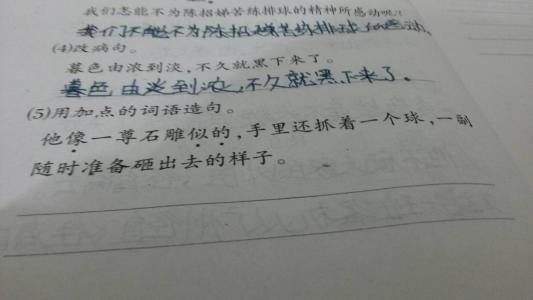 我们怎能不为陈招娣苦练排球的精神所感动呢？
我们不能不为陈招娣苦练排球
(4)改病句。
暮色由浓到淡，不久就黑下来了。
暮色由淡到浓，不久就黑下来了。
(5)用加点的词语造句。
他像一尊石雕似的，手里还抓着一个球，一副
随时准备砸出去的样子。